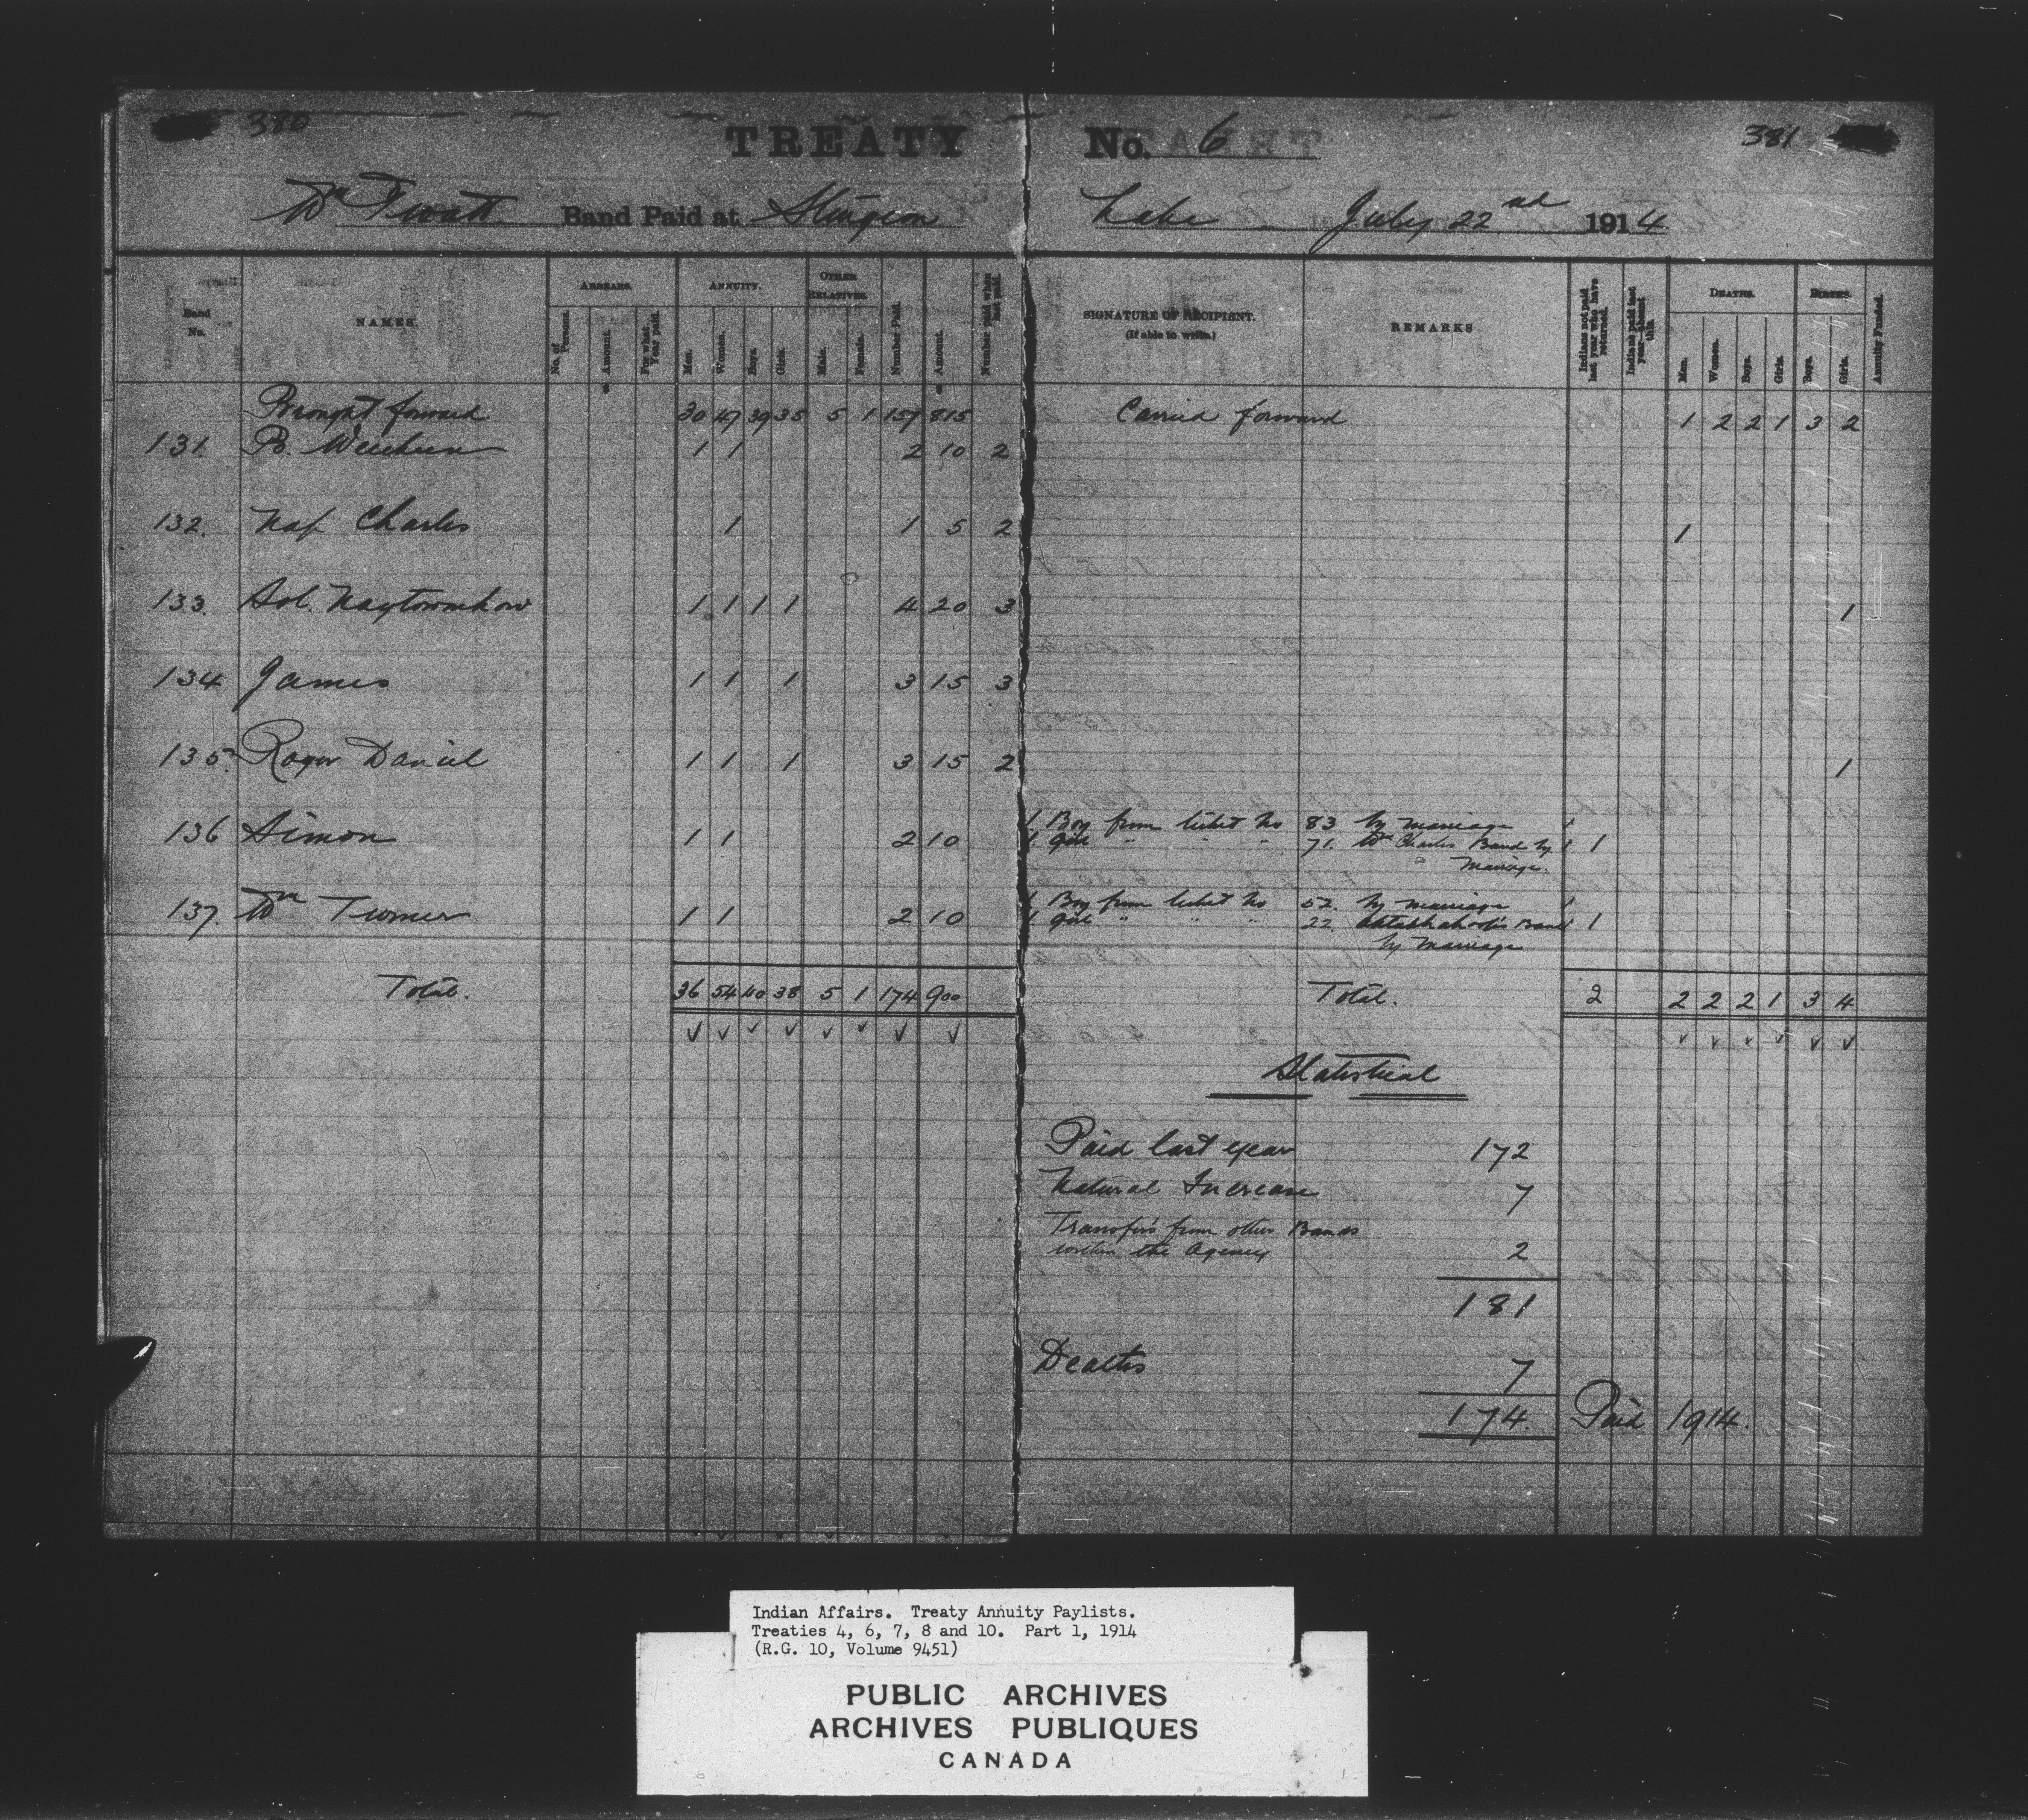 380
TREATY No. 6
381
Wm Twatt Band Paid at Sturgeon Lake July 22nd 1914
Band No.
NAMES.
ARREARS.
No. of Persons.
$ Amount.
For what Year paid.
ANNUITY.
Men.
Women.
Boys.
Girls.
OTHER RELATIVES.
Male.
Female.
Number Paid.
$ Amount.
Number paid when last paid.
SIGNATURE OF RECIPIENT.
(If able to write.)
REMARKS
Indians not paid last year who have returned.
Indians paid last year—absent this
DEATHS.
Men.
Women.
Boys.
Girls.
BIRTHS.
Boys.
Girls.
Annuity Funded.
Brought forward 30 47 39 35 5 1 157 815 Carried forward 1 2 2 1 3 2
131. 1 1 2 10 2
132. Nap Charles 1 1 5 2 1
133. Sol. Naytowhow 1 1 1 1 4 20 3 1
134 James 1 1 1 3 15 3
135. Roger Daniel 1 1 1 3 15 2 1
136 Simon 1 1 2 10 1 Boy from ticket No 83 by marriage 1
1 Girl " " " 71. Wm Charles Band by 1 1
Marriage.
137. Wm Turner 1 1 2 10 1 Boy from ticket No 52. by marriage 1
1 Girl " " " 22. Band 1
by Marriage
Total. 36 54 40 38 5 1 174 900 Total. 2 2 2 2 1 3 4
Statistical
Paid last year 172
Natural Increase 7
Transfers from other Bands
within the Agency 2
181
Deaths 7
174. Paid 1914.
Indian Affairs. Treaty Annuity Paylists.
Treaties 4, 6, 7, 8 and 10. Part 1, 1914
(R.G. 10, Volume 9451)
PUBLIC ARCHIVES
ARCHIVES PUBLIQUES
CANADA